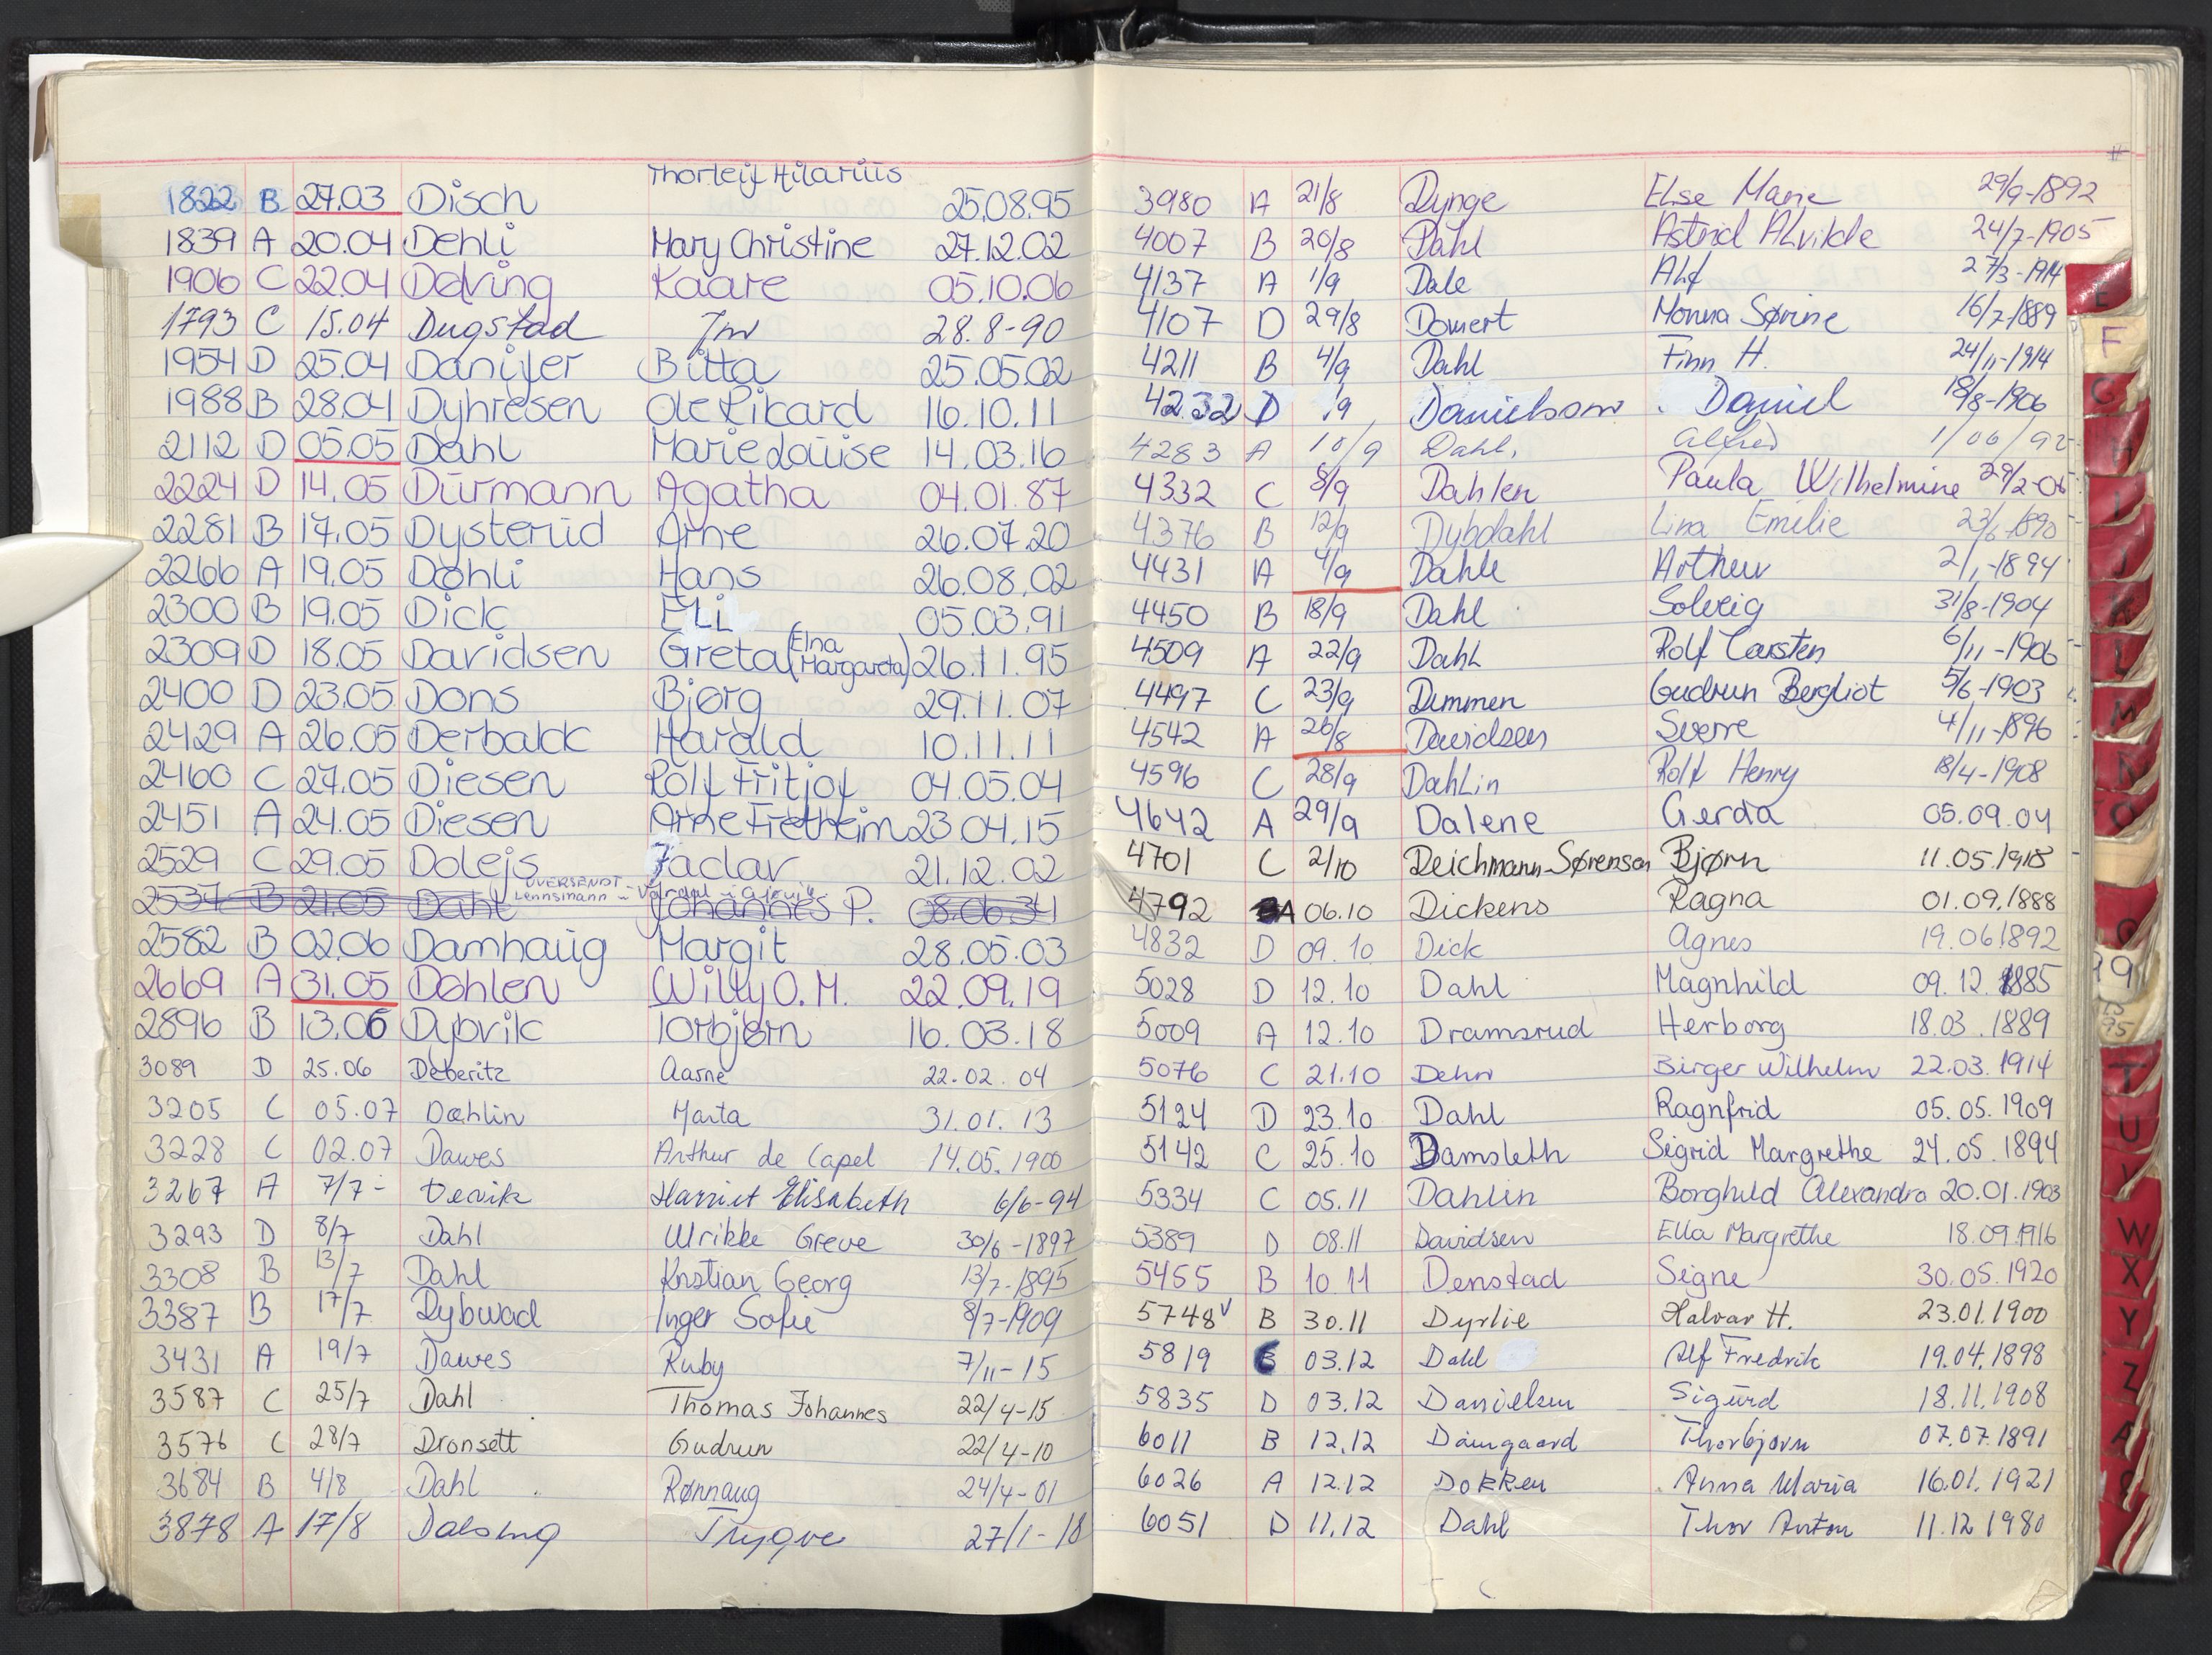 Thorleif Hilarius
1822 B 27.03 Disch 25.08.95
1839 A 20.04 Dehli Mary Christine 27.12.02
1906 C 22.04 Delving Kaare 05.10.06
1793 C 15.04 Dugstad 28.8-90
1954 D 25.04 Danifer Bitta 25.05.02
1988 B 28.04 Dyhresen Ole Rikard 16.10.11
2112 D 05.05 Dahl Marie Louise 14.03.16
2224 D 14.05 Dürmann Agatha 04.01.87
2281 B 17.05 Dysterud Arne 26.07.20
2266 A 19.05 Døhli Hans 26.08.02
2300 B 19.05 Dick Eli 05.03.91
2309 D 18.05 Davidsen Greta (Elna Margareta) 26.11.95
2400 D 23.05 Dons Bjørg 29.11.07
2429 A 26.05 Derbakk Harald 10.11.11
2460 C 27.05 Diesen Rolf Fritjof 04.05.04
2451 A 24.05 Diesen Arne Fretheim 23.04.15
2529 C 29.05 Dolejs Vaclav 21.12.02
Lennsmann
2537 B 21.05 Dahl Johannes P. 08.06.34
2582 B 02.06 Damhaug Margit 28.05.03
2669 A 31.05 Dahlen Willy O.M. 22.09.19
2896 B 13.06 Dybvik Torbjørn 16.03.18
3089 D 25.06 Døberitz Aasne 22.02.04
3205 C 05.07 Dæhlin Marta 31.01.13
3228 C 02.07 Dawes Arthur de Capel 14.05.1900
3267 A 7/7- Harriet Elisabeth 6/6-94
3293 D 8/7 Dahl Ulrikke Greve 30/6-1897
3308 B 13/7 Dahl Kristian Georg 13/7-1895
3387 B 17/7 Dybwad Inger Sofie 8/7-1909
3431 A 19/7 Dawes Ruby 7/11-15
3587 C 25/7 Dahl Thomas Johannes 22/4-15
3576 C 28/7 Dronsett Gudrun 22/4-10
3684 B 4/8 Dahl Rønnaug 24/4-01
3878 A 17/8 Trygve 27/1-18
3980 A 21/8 Dynge Else Marie 29/9-1892
4007 B 20/8 Dahl Astrid Alvilde 24/7-1905
4137 A 1/9 Dale Alf 27/3-1914
4107 D 29/8 Domert Monna Sørine 16/7-1889
4211 B 4/9 Dahl Finn H. 24/11-1914
4232 D /9 Danielsom Daniel 18/8-1906
4283 A 10/9 Dahl, Alfred 1/06/92
4332 C 8/9 Dahlen Paula Wilhelmine 29/2-06
4376 B 12/9 Dybdahl Lina Emilie 23/6-1890
4431 A 4/9 Dahle Arthur 2/1-1894
4450 B 18/9 Dahl Solveig 31/8-1904
4509 A 22/9 Dahl Rolf Carsten 6/11-1906
4497 C 23/9 Dimmen Gudrun Bergliot 5/6-1903
4542 A 26/8 Davidsen Sverre 4/11-1896
4596 C 28/9 Dahlin Rolf Henry 18/4-1908
4642 A 29/9 Dalene Gerda 05.09.04
4701 C 2/10 Deichmann-Sørenson Bjørn 11.05.1918
4792 A 06.10 Dickens Ragna 01.09.1888
4832 D 09.10 Dick Agnes 19.06.1892
5028 D 12.10 Dahl Magnhild 09.12.1885
5009 A 12.10 Dramsrud Herborg 18.03.1889
5076 C 21.10 Dehn Birger Wilhelm 22.03.1914
5124 D 23.10 Dahl Ragnfrid 05.05.1909
5142 C 25.10 Damsleth Sigrid Margrethe 24.05.1894
5334 C 05.11 Dahlin Borghild Alexandra 20.01.1903
5389 D 08.11 Davidsen Ella Margrethe 18.09.1916
5455 B 10.11 Denstad Signe 30.05.1920
5748 v B 30.11 Dyrlie Halvar H. 23.01.1900
5819 03.12 Dahl Alf Fredrik 19.04.1898
5835 D 03.12 Danielsen Sigurd 18.11.1908
6011 B 12.12 Damgaard Thorbjørn 07.07.1891
6026 A 12.12 Dokken Anna Maria 16.01.1921
6051 D 11.12 Dahl Thor Anton 11.12.1980
E
F
G
H
I
J
K
L
M
N
O
T
U
V
W
X
Y
Z